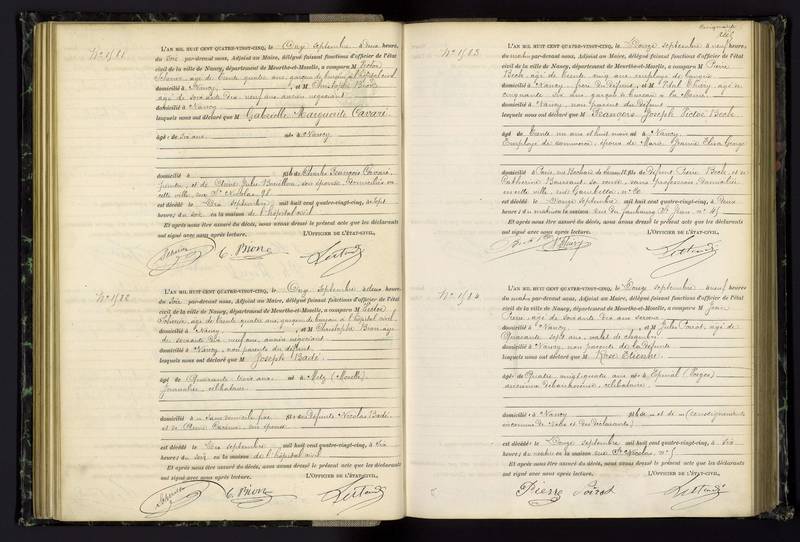 N° 1/81
L'AN MIL HUIT CENT QUATRE-VINGT-CINQ, le Onze septembre, à deux heures
du soir par-devant nous, Adjoint au Maire, délégué faisant fonctions d'officier de l'état
civil de la ville de Nancy, département de Meurthe-et-Moselle, a comparu M Victor
âgé de trente quatre ans, garçon de bureau à l'hôpital civil
domicilié à Nancy, et M Christophe Bion
âgé de soixante dix neuf ans ancien négociant
domicilié à Nancy
lesquels nous ont déclaré que M Gabrielle Marguerite Cavare
âgé de six ans né à Nancy
domicilié à fils de Charles François Cavare
peintre, et de son épouse, domiciliés en
cette ville, rue St Nicolas, 98
est décédé le Dix septembre mil huit cent quatre-vingt-cinq, à sept
heures du soir en la maison de l'hôpital civil
Et après nous être assuré du décès, nous avons dressé le présent acte que les déclarants
ont signé avec nous après lecture. L'OFFICIER DE L'ÉTAT-CIVIL,
C. Bion
N° 1/82
L'AN MIL HUIT CENT QUATRE-VINGT-CINQ, le Onze septembre à deux heures
du soir par-devant nous, Adjoint au Maire, délégué faisant fonctions d'officier de l'état
civil de la ville de Nancy, département de Meurthe-et-Moselle, a comparu M Victor
âgé de trente quatre ans, garçon de bureau à l'hôpital civil
domicilié à Nancy, et M Christophe Bion âgé
de soixante dix neuf ans, ancien négociant
domicilié à Nancy, non parents du défunt
lesquels nous ont déclaré que M Joseph Badé
âgé de Quarante trois ans né à Metz (Moselle)
journalier, célibataire
domicilié à sans domicile fixe fils des défunts Nicolas Badé
et de son épouse
est décédé le Dix septembre mil huit cent quatre-vingt-cinq, à six
heures du soir en la maison de l'hôpital civil
Et après nous être assuré du décès, nous avons dressé le présent acte que les déclarants
ont signé avec nous après lecture. L'OFFICIER DE L'ÉTAT-CIVIL,
C. Bion
N° 1/83
L'AN MIL HUIT CENT QUATRE-VINGT-CINQ, le Douze septembre à neuf heures
du matin par-devant nous, Adjoint au Maire, délégué faisant fonctions d'officier de l'état
civil de la ville de Nancy, département de Meurthe-et-Moselle, a comparu M Pierre
Beck, âgé de trente cinq ans, employé de
domicilié à Nancy, frère du défunt, et M Vital Thiry, âgé de
cinquante six ans garçon de bureau à la Mairie
domicilié à Nancy, non parent du défunt
lesquels nous ont déclaré que M François Joseph Victor Beck
âgé de trente un ans et huit mois né à Nancy
Employé de commerce, époux de Marie
domicilié à Paris, fils de défunt Pierre Beck, et de
Catherine sa veuve, sans profession, domiciliée
en cette ville, rue Gambetta, n° 20
est décédé le Douze septembre mil huit cent quatre-vingt-cinq, à deux
heures du matin en la maison rue du faubourg St Jean n° 45
Et après nous être assuré du décès, nous avons dressé le présent acte que les déclarants
ont signé avec nous après lecture. L'OFFICIER DE L'ÉTAT-CIVIL,
V. Thiry
N° 1/84
L'AN MIL HUIT CENT QUATRE-VINGT-CINQ, le Douze septembre à neuf heures
du matin par-devant nous, Adjoint au Maire, délégué faisant fonctions d'officier de l'état
civil de la ville de Nancy, département de Meurthe-et-Moselle, a comparu M Jean
Pierre, âgé de soixante dix ans
domicilié à Nancy, et M Jules Poirot, âgé de
Quarante sept ans, valet de chambre
domicilié à Nancy, non parents de la défunte
lesquels nous ont déclaré que M Rose Etienne
âgé de Quatre vingt quatre ans née à Epinal (Vosges)
ancienne célibataire
domiciliée à Nancy fille de et de (renseignements
inconnus de nous et des déclarants)
est décédé le Onze septembre mil huit cent quatre-vingt-cinq, à six
heures du matin en la maison rue St Nicolas, n° 5
Et après nous être assuré du décès, nous avons dressé le présent acte que les déclarants
ont signé avec nous après lecture. L'OFFICIER DE L'ÉTAT-CIVIL,
Pierre Poirot